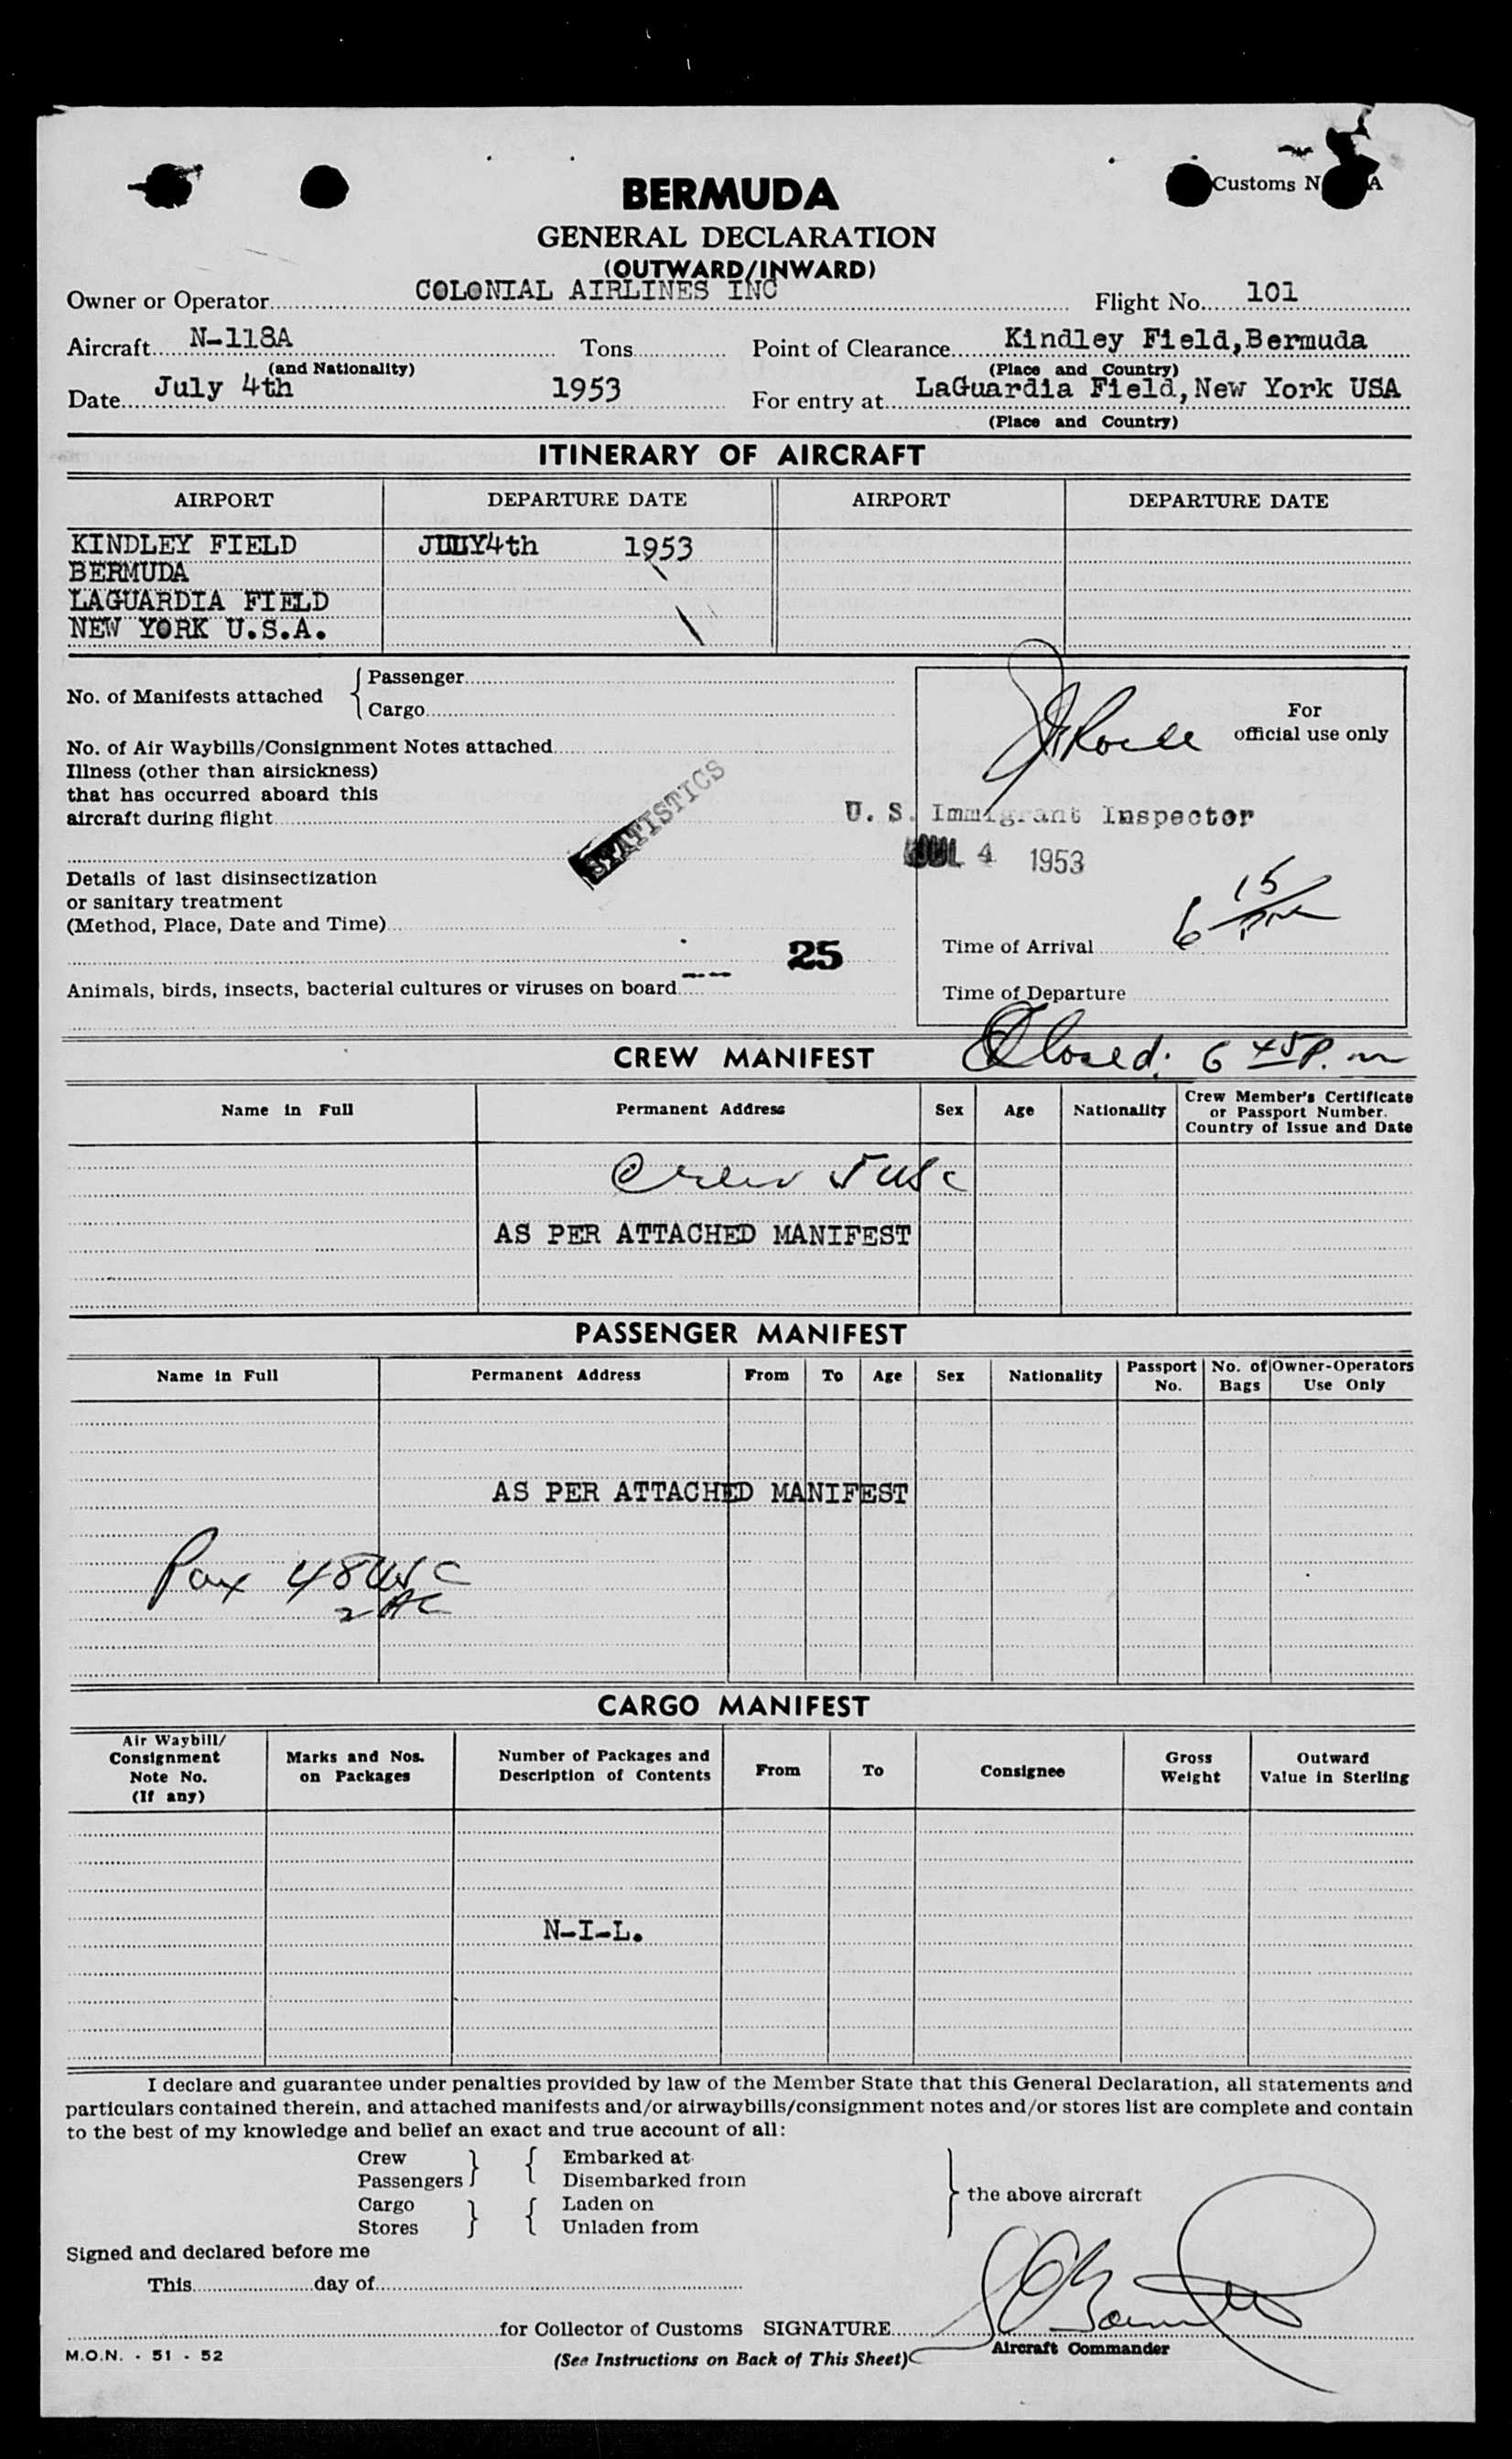 Customs N A
BERMUDA
GENERAL DECLARATION
(OUTWARD/INWARD)
Owner or Operator COLONIAL AIRLINES INC Flight No. 101
Aircraft N-118A Tons Point of Clearance Kindley Field, Bermuda
(and Nationality) (Place and Country)
Date July 4th 1953 For entry at LaGuardia Field, New York USA
(Place and Country)
ITINERARY OF AIRCRAFT
AIRPORT DEPARTURE DATE AIRPORT DEPARTURE DATE
KINDLEY FIELD 4th 1953
BERMUDA
LAGUARDIA FIELD
NEW YORK U.S.A.
No. of Manifests attached { Passenger
Cargo
For
official use only
No. of Air Waybills/Consignment Notes attached
Illness (other than airsickness)
that has occurred aboard this
aircraft during flight
STATISTICS
U. S. Immigrant Inspector
JUL 4 1953
Details of last disinsectization
or sanitary treatment
(Method, Place, Date and Time)
25
6 15 pm
Time of Arrival
Animals, birds, insects, bacterial cultures or viruses on board -- --
Time of Departure
CREW MANIFEST Closed: 6 45 P.m
Name in Full Permanent Address Sex Age Nationality Crew Member's Certificate
or Passport Number.
Country of Issue and Date
Crew 5 USC
AS PER ATTACHED MANIFEST
PASSENGER MANIFEST
Name in Full Permanent Address From To Age Sex Nationality Passport No. No. of Bags Owner-Operators Use Only
AS PER ATTACHED MANIFEST
Pax 48 USC
2 AC
CARGO MANIFEST
Air Waybill/
Consignment
Note No.
(If any)
Marks and Nos.
on Packages
Number of Packages and
Description of Contents
From To Consignee
Gross
Weight
Outward
Value in Sterling
N-I-L.
I declare and guarantee under penalties provided by law of the Member State that this General Declaration, all statements and
particulars contained therein, and attached manifests and/or airwaybills/consignment notes and/or stores list are complete and contain
to the best of my knowledge and belief an exact and true account of all:
Crew } { Embarked at
Passengers Disembarked from
the above aircraft
Cargo } { Laden on
Stores Unladen from
Signed and declared before me
This day of
for Collector of Customs SIGNATURE
Aircraft Commander
M.O.N. - 51 - 52 (See Instructions on Back of This Sheet)